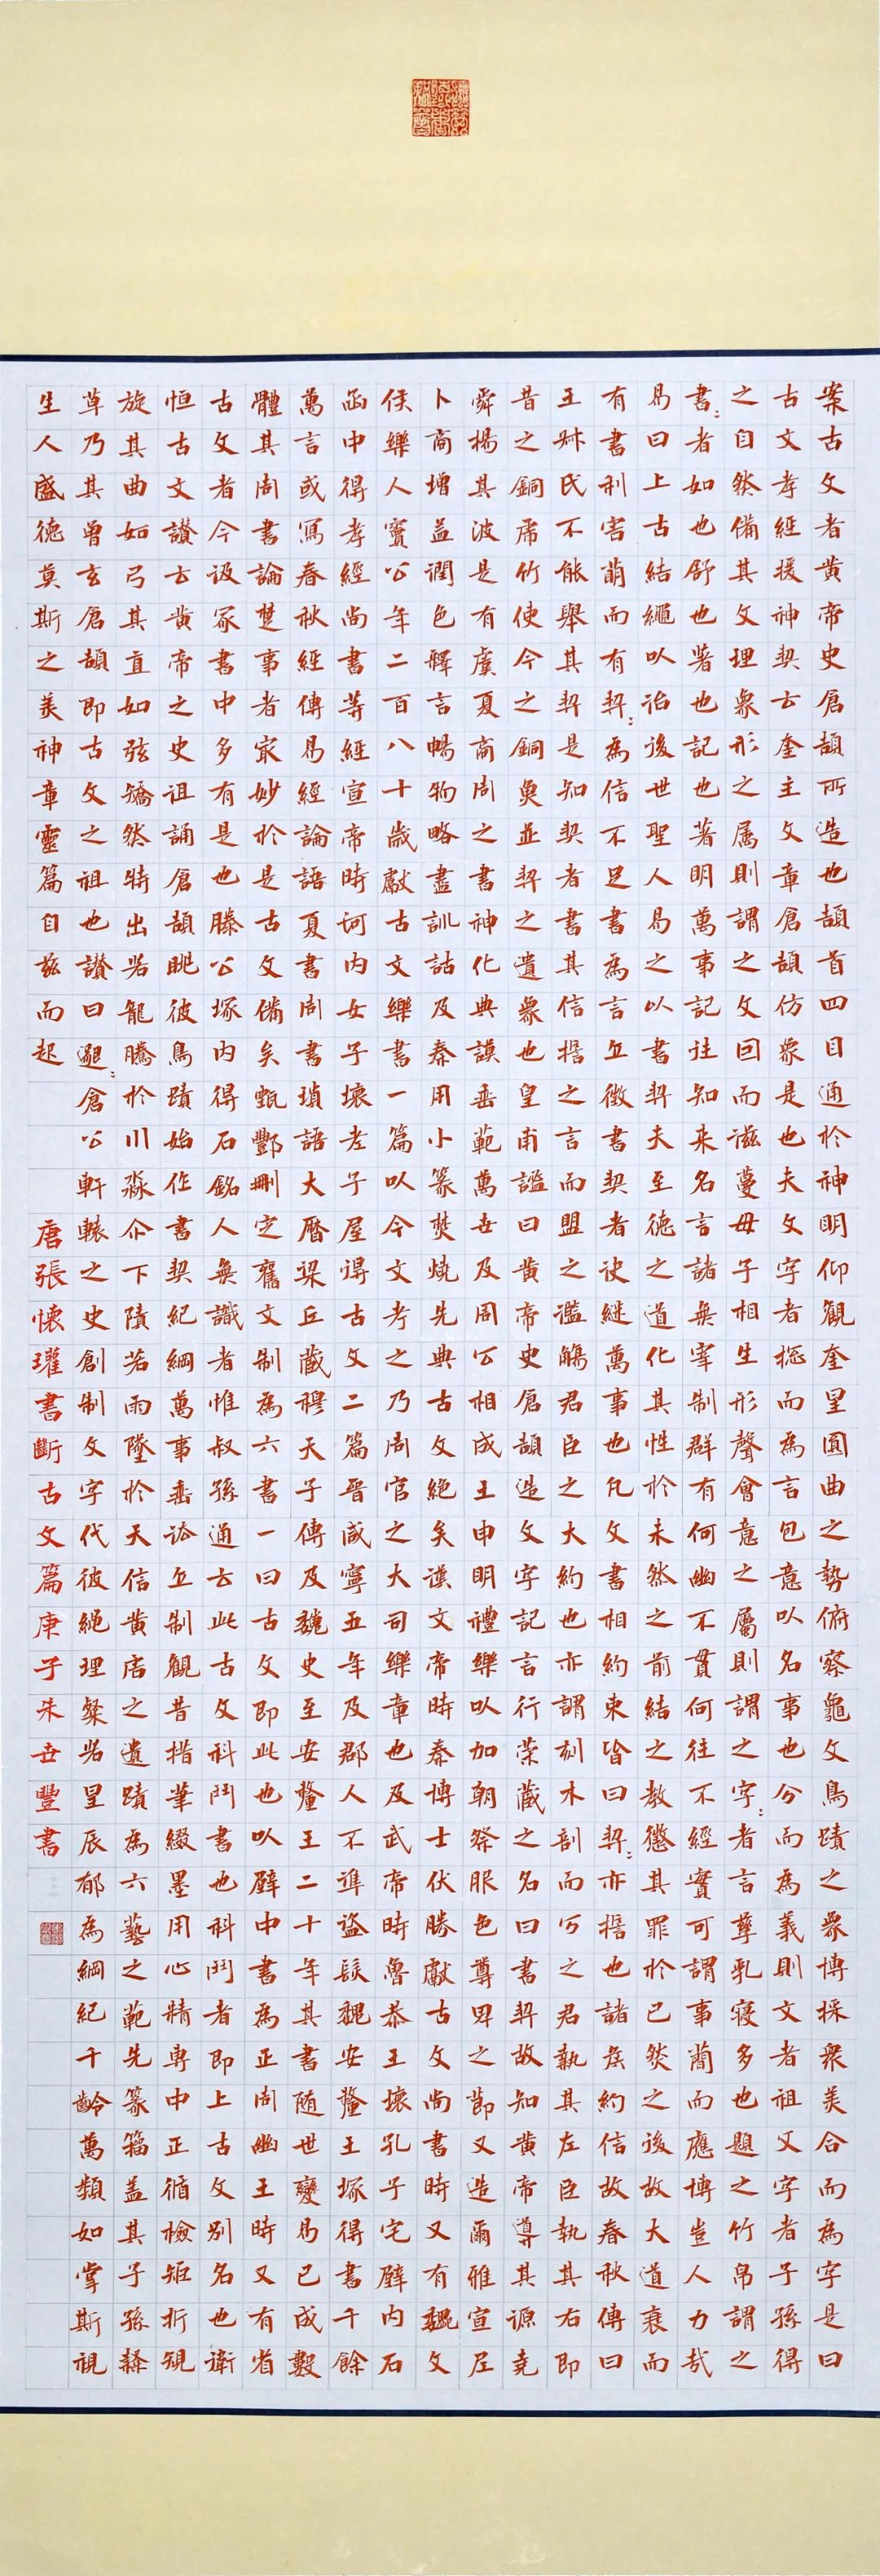 案古文者黃帝史倉頡所造也頡首四目通於神明仰觀奎星圓曲之勢俯察龜文鳥蹟之象博採衆美合而為字是曰
古文孝經援神契云奎主文章倉頡仿象是也夫文字者揔而為言包意以名事也分而為義則文者祖父字者子孫得
之自然備其文理象形之属則謂之文因而滋蔓母子相生形聲會意之屬則謂之字〻者言孳乳寖多也題之竹帛謂之
書〻者如也舒也著也記也著明萬事記往知來名言諸無宰制群有何幽不貫何往不經實可謂事簡而應博豈人力哉
易曰上古結繩以治後世聖人易之以書契夫至德之道化其性於未然之前結之教懲其罪於已然之後故大道衰而
有書利害萌而有契〻為信不足書為言立徵書契者决継萬事也凡文書相約束皆曰契〻亦誓也諸矦約信故春秋傳曰
王叔氏不能舉其契是知契者書其信誓之言而盟之濫觴君臣之大約也亦謂刻木剖而分之君執其左臣執其右即
昔之銅虎竹使今之銅魚並契之遺象也皇甫謐曰黃帝史倉頡造文字記言行策藏之名曰書契故知黃帝導其源堯
舜揚其波是有虞夏商周之書神化典謨垂範萬世及周公相成王申明禮樂以加朝祭服色尊卑之節又造爾雅宣尼
卜商增益潤色釋言暢物略盡訓詁及秦用小篆焚燒先典古文絕矣漢文帝時秦博士伏勝獻古文尚書時又有魏文
侯樂人竇公年二百八十歲獻古文樂書一篇以今文考之乃周官之大司樂章也及武帝時魯恭王壞孔子宅壁内石
函中得孝經尚書等經宣帝時河内女子壞老子屋得古文二篇晉咸寧五年及郡人不準盜發魏安釐王塚得書千餘
萬言或寫春秋經傳易經論語夏書周書瑣語大曆梁丘藏穆天子傳及魏史至安釐王二十年其書随世變易已成數
體其周書論楚事者冣妙於是古文備矣甄酆刪定舊文制為六書一曰古文即此也以壁中書為正周幽王時又有省
古文者今汲冢書中多有是也滕公塚内得石銘人無識者惟叔孫通云此古文科鬥書也科鬥者即上古文別名也衛
恒古文讃云黃帝之史沮誦倉頡眺彼鳥蹟始作書契紀綱萬事垂法立制觀昔揩筆綴墨用心精專中正循檢矩折規
旋其曲如弓其直如弦矯然特出若龍騰於川淼尒下隤若雨墜於天信黃唐之遺蹟為六藝之範先篆籀蓋其子孫隸
草乃其曾玄倉頡即古文之祖也讃曰邈〻倉公軒轅之史創制文字代彼繩理粲若星辰郁為綱紀千齡萬類如掌斯視
生人盛德莫斯之美神章靈篇自茲而起 唐張懷瓘書斷古文篇庚子朱世豐書